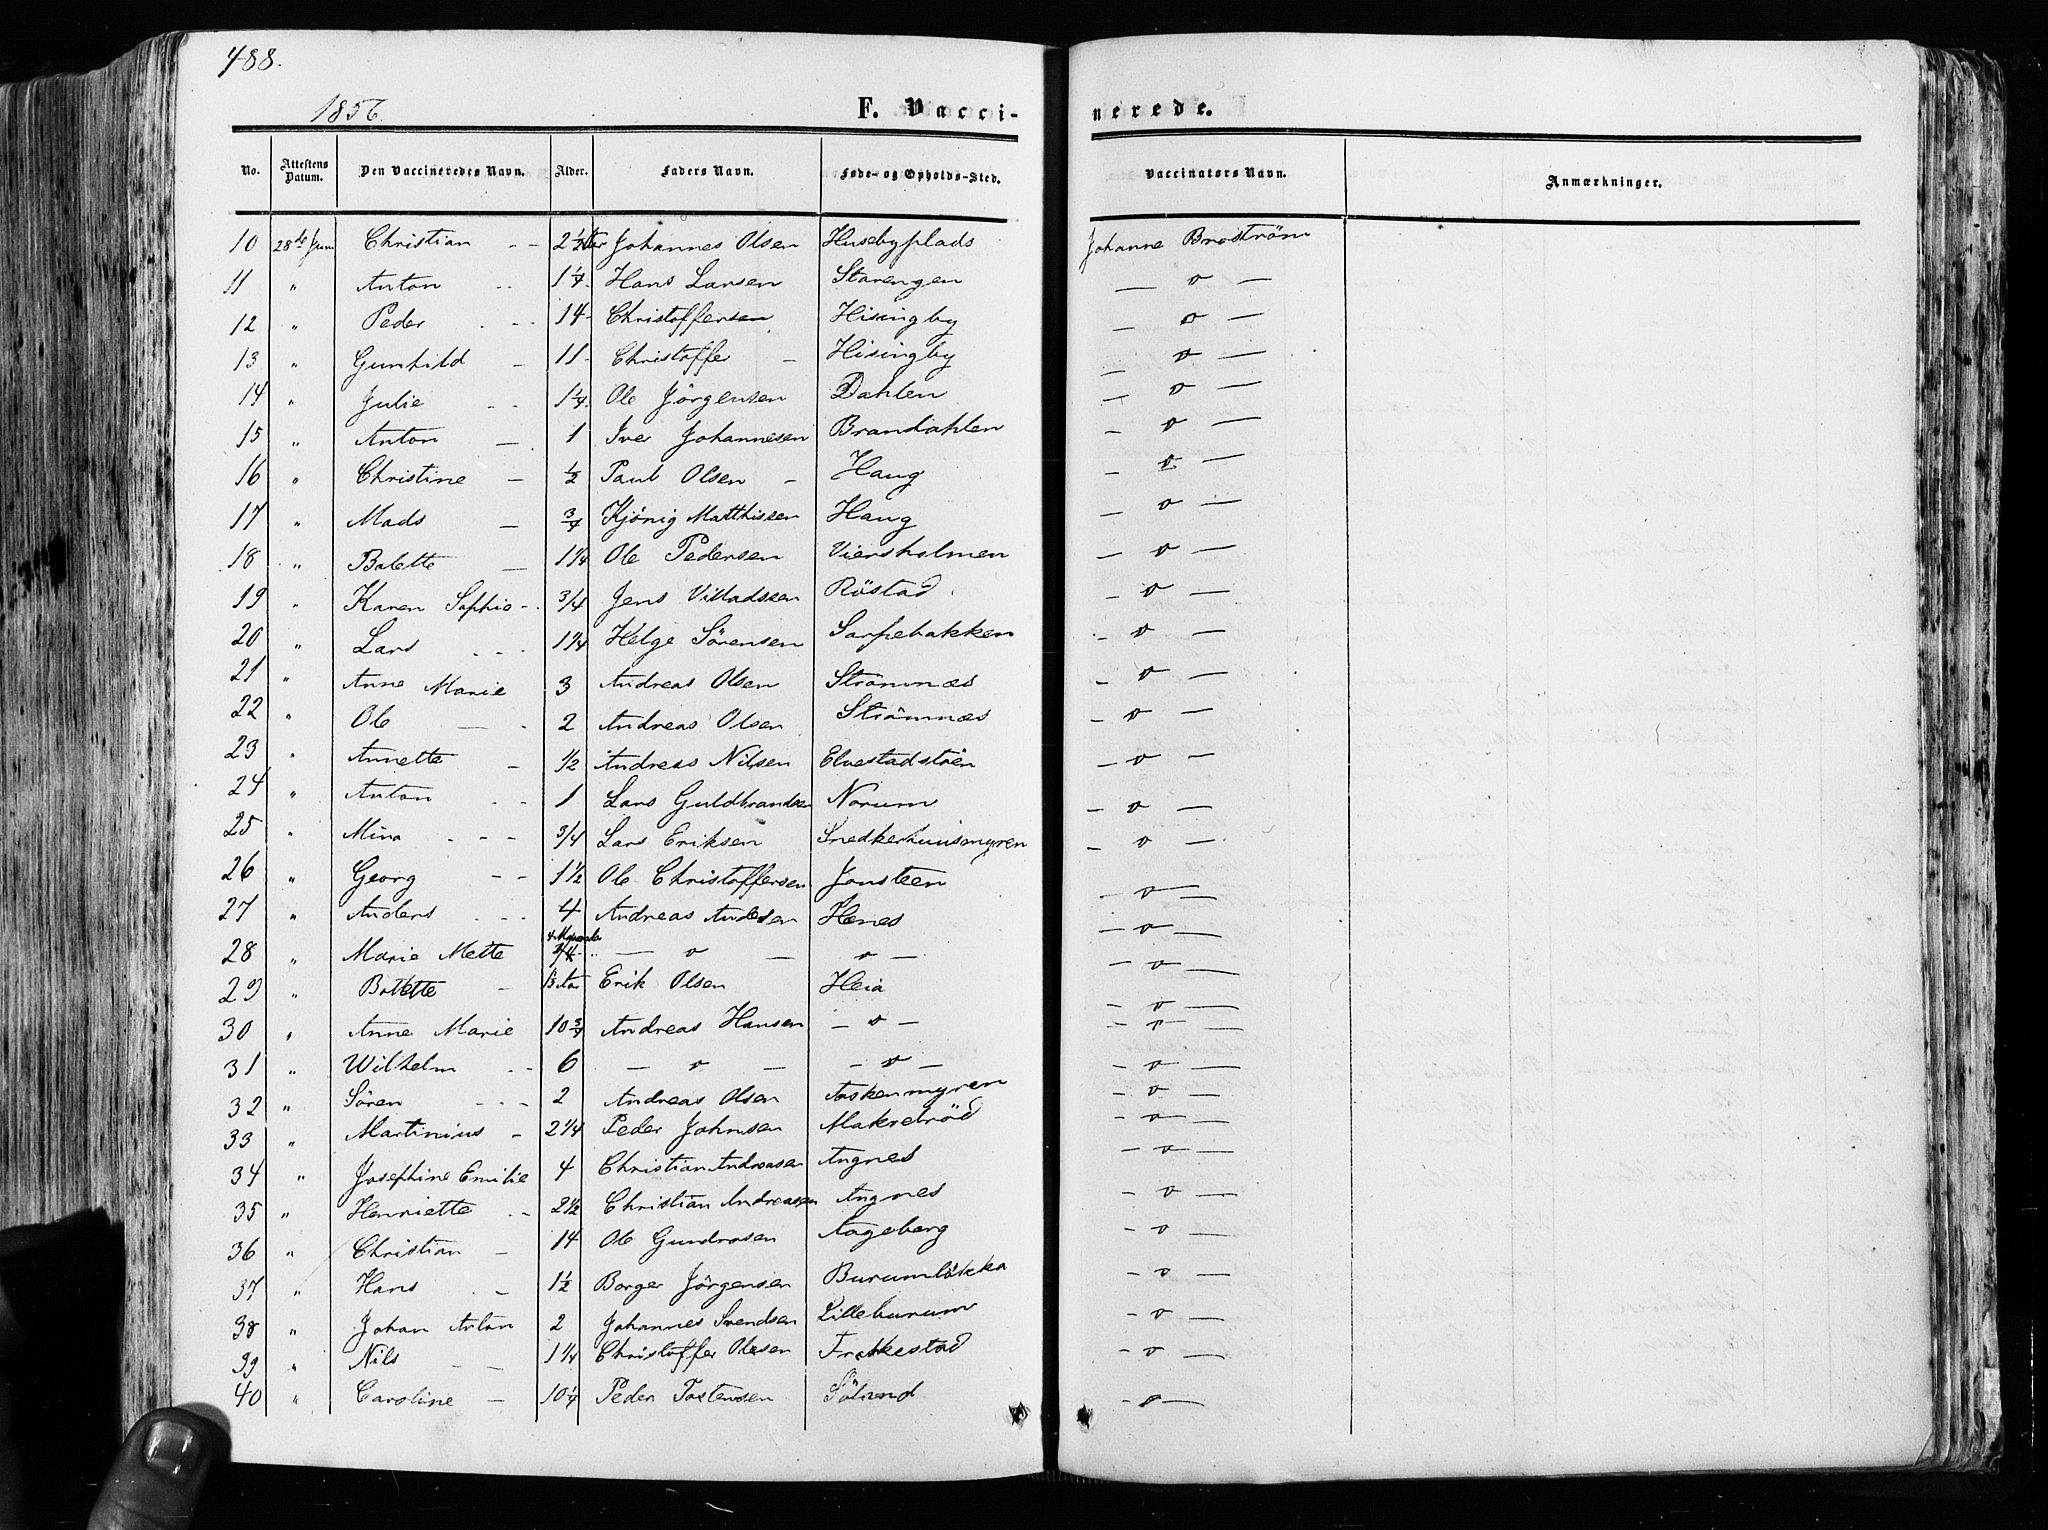 488.
1856.
F. Vacci-
nerede.
No. Attestens Datum. Den Vaccineredes Navn. Alder. Faders Navn. Føde- og Opholds-Sted. Vaccinatørs Navn. Anmærkninger.
10 28de Juni Christian - - 2 1/2 Johannes Olsen Husebyplads Johanne Broström
11 " Anton - - 1 1/4 Hans Larsen Starengen — o —
12 " Peder - - - 14 - Christoffersen Hisingby — o —
13 " Gunhild - 11 - Christoffer - Hisingby — o —
14 " Julie - - 1 1/4 Ole Jörgensen Dahlen — o —
15 " Anton - 1 Iver Johannesen Brandahlen — o —
16 " Christine - 1/2 Paul Olsen - Haug — o —
17 " Mads - 3/4 Kjönig Matthissen Haug — o —
18 " Bolette - 1 1/4 Ole Pedersen Viersholmen — o —
19 " Karen Sophie - 3/4 Jens Villadssen Röstad — o —
20 " Lars - - - 1 1/4 Helge Sörensen Sarpebakken — o —
21 " Anne Marie 3 Andreas Olsen Strömnæs — o —
22 " Ole - - 2 Andreas Olsen Strömnæs — o —
23 " Annette - 1/2 Andreas Nilsen Elvestadstöen — o —
24 " Anton - - 1 Lars Guldbrandsen Norum — o —
25 " Mina - - - 3/4 Lars Eriksen Snedkerhuusmyren — o —
26 " Georg - - 1 1/2 Ole Christoffersen Jonsteen — o —
27 " Anders - - - 4 Andreas Andersen Henes — o —
28 " Marie Mette 3/4 — o — - o - — o —
29 " Bolette - Erik Olsen Heia — o —
30 " Anne Marie 10 3/4 Andreas Hansen - o - — o —
31 " Wilhelm - - 6 — o — - o - — o —
32 " Sören - - - 2 Andreas Olsen Askenmyren — o —
33 " Martinius - 2 1/4 Peder Johnsen Makreröd — o —
34 " Josephine Emilie 4 Christian Andreasen Angnes — o —
35 " Henriette - - 2 1/2 Christian Andreasen Angnes — o —
36 " Christian - 14 Ole Gundrosen Aageberg — o —
37 " Hans - - 1 1/2 Borger Jörgensen Burumlökka — o —
38 " Johan Anton 2 Johannes Svendsen Lilleburum — o —
39 " Nils - - 1 1/4 Christoffer Olesen Frakkestad — o —
40 " Caroline - 10 1/4 Peder Tostensen Sölund — o —